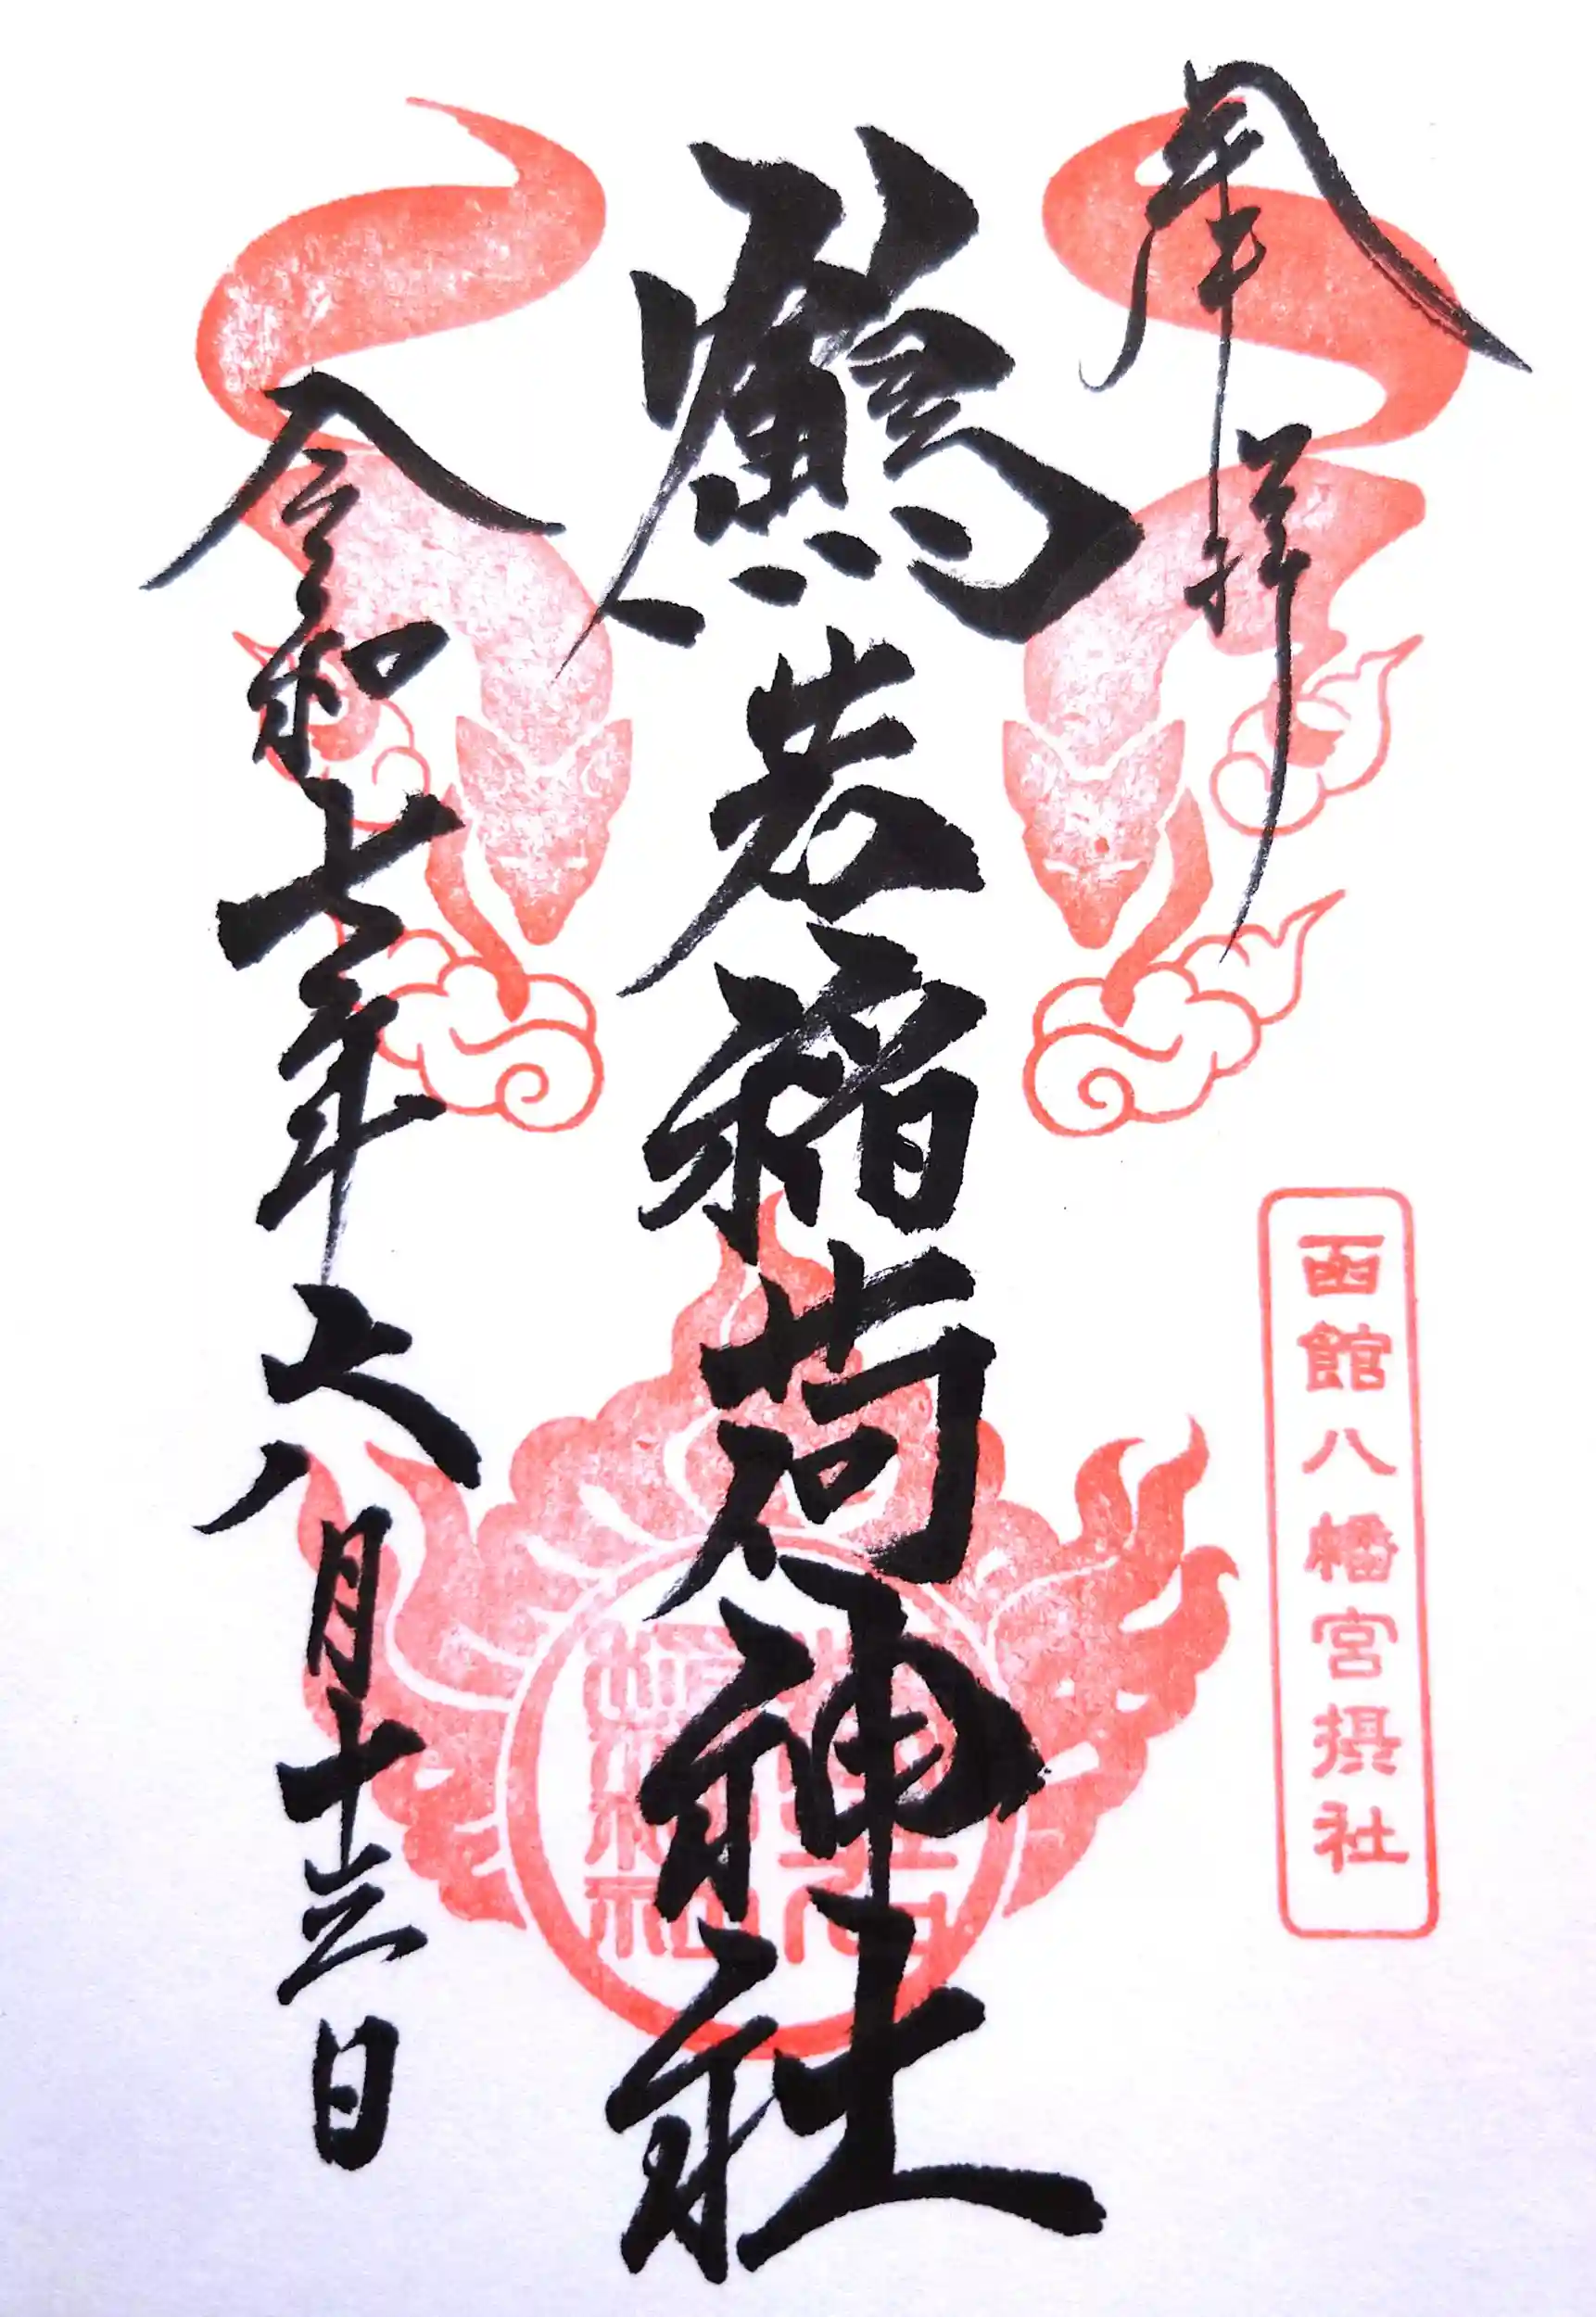 奉拝
函館八幡宮摂社
鶴若稲荷神社
令和七年六月十三日